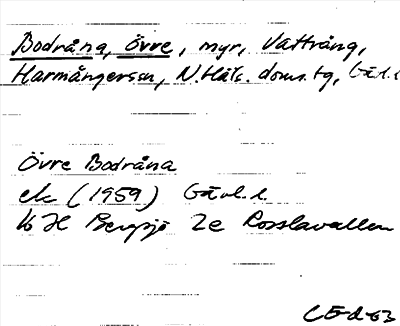 Bodråna, Övre, myr, Vattrång,
Harmångerssn, N. Häls. doms.tg, Gävl. l.
Övre Bodråna
ek (1959) Gävl. l.
16 H Bergsjö 2e Rosslavallen